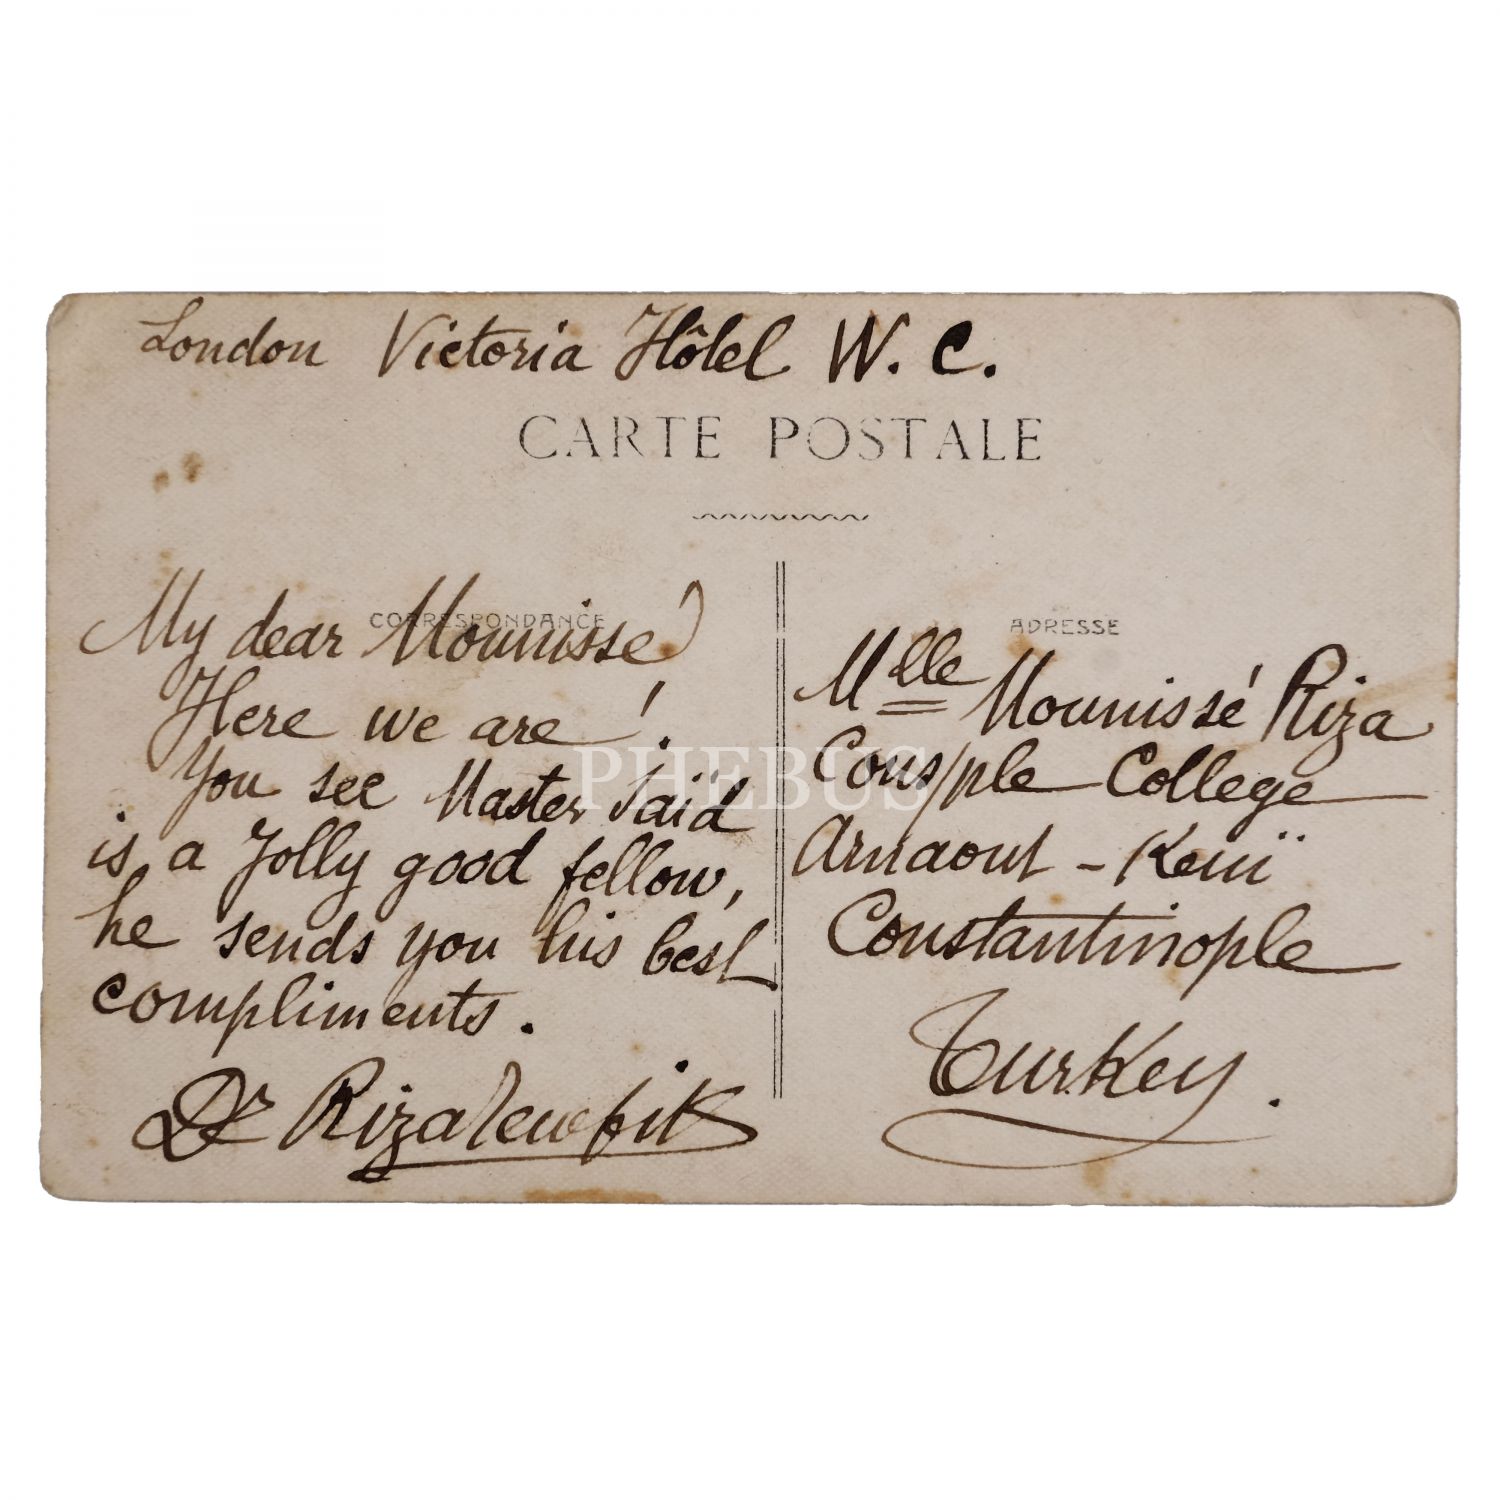 London Victoria Hôtel W. C.
CARTE POSTALE
CORRESPONDANCE
My dear Mounissé
Here we are!
You see Master Saïd
is a Jolly good fellow,
he sends you his best
compliments.
Dr Riza Tewfik
ADRESSE
Mlle Mounissé Riza
Cons/ple College
Arnaout - Keuï
Constantinople
Turkey.
PHEBUS